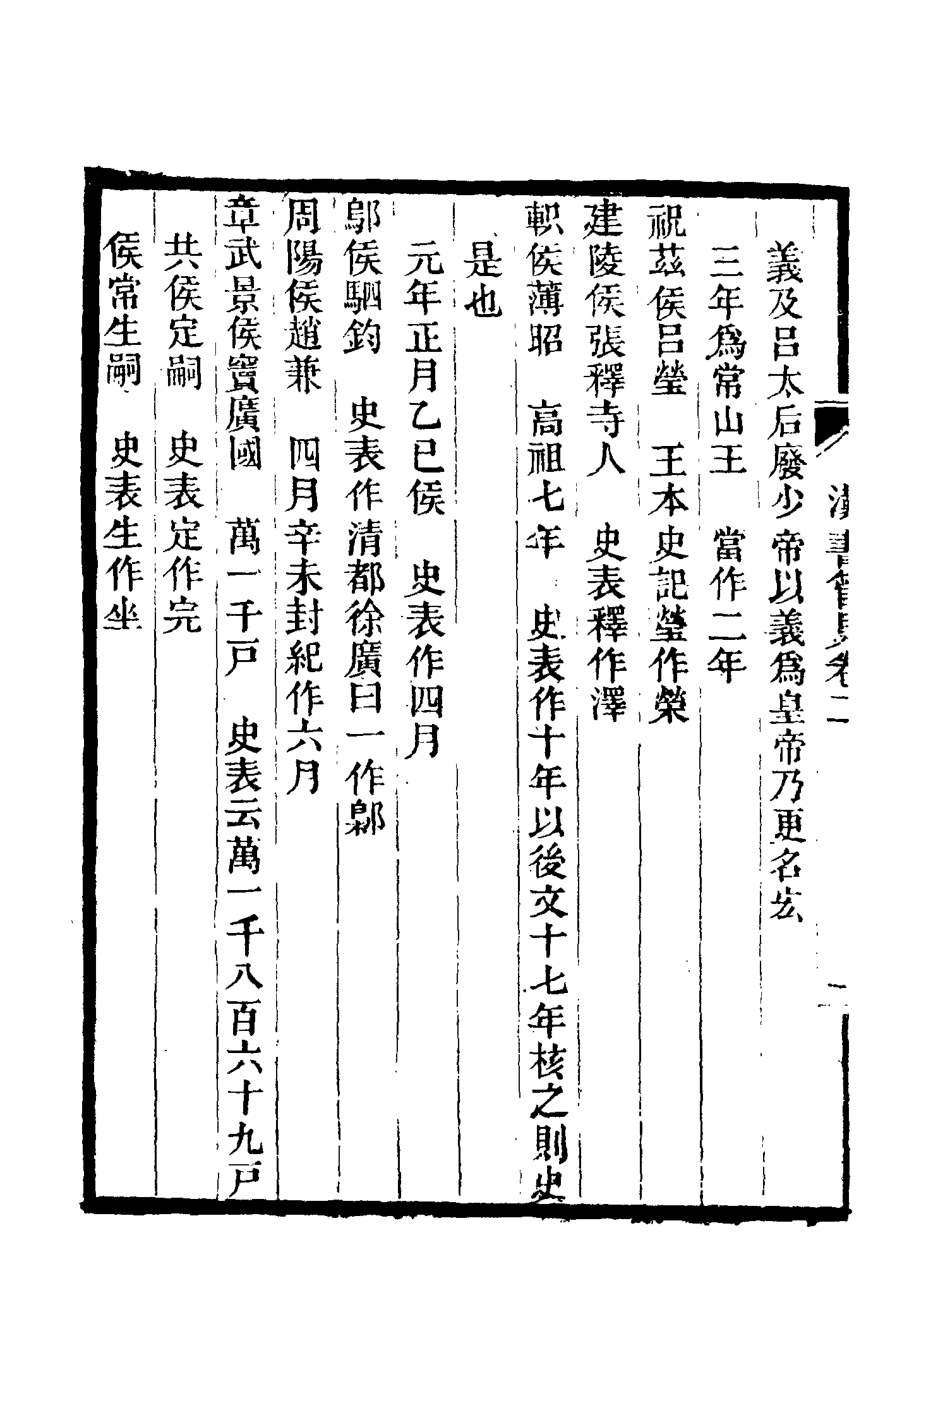 義及呂太后廢少帝以義為皇帝乃更名宏
三年為常山王　當作二年
祝茲侯呂瑩　王本史記瑩作榮
建陵侯張釋寺人　史表釋作澤
軹侯薄昭　高祖七年　史表作十年以後文十七年核之則史
是也
元年正月乙巳侯　史表作四月
鄔侯駟鈞　史表作清都徐廣曰一作鄡
周陽侯趙兼　四月辛未封紀作六月
章武景侯竇廣國　萬一千戶　史表云萬一千八百六十九戶
共侯定嗣　史表定作完
侯常生嗣　史表生作坐
漢書管見卷二